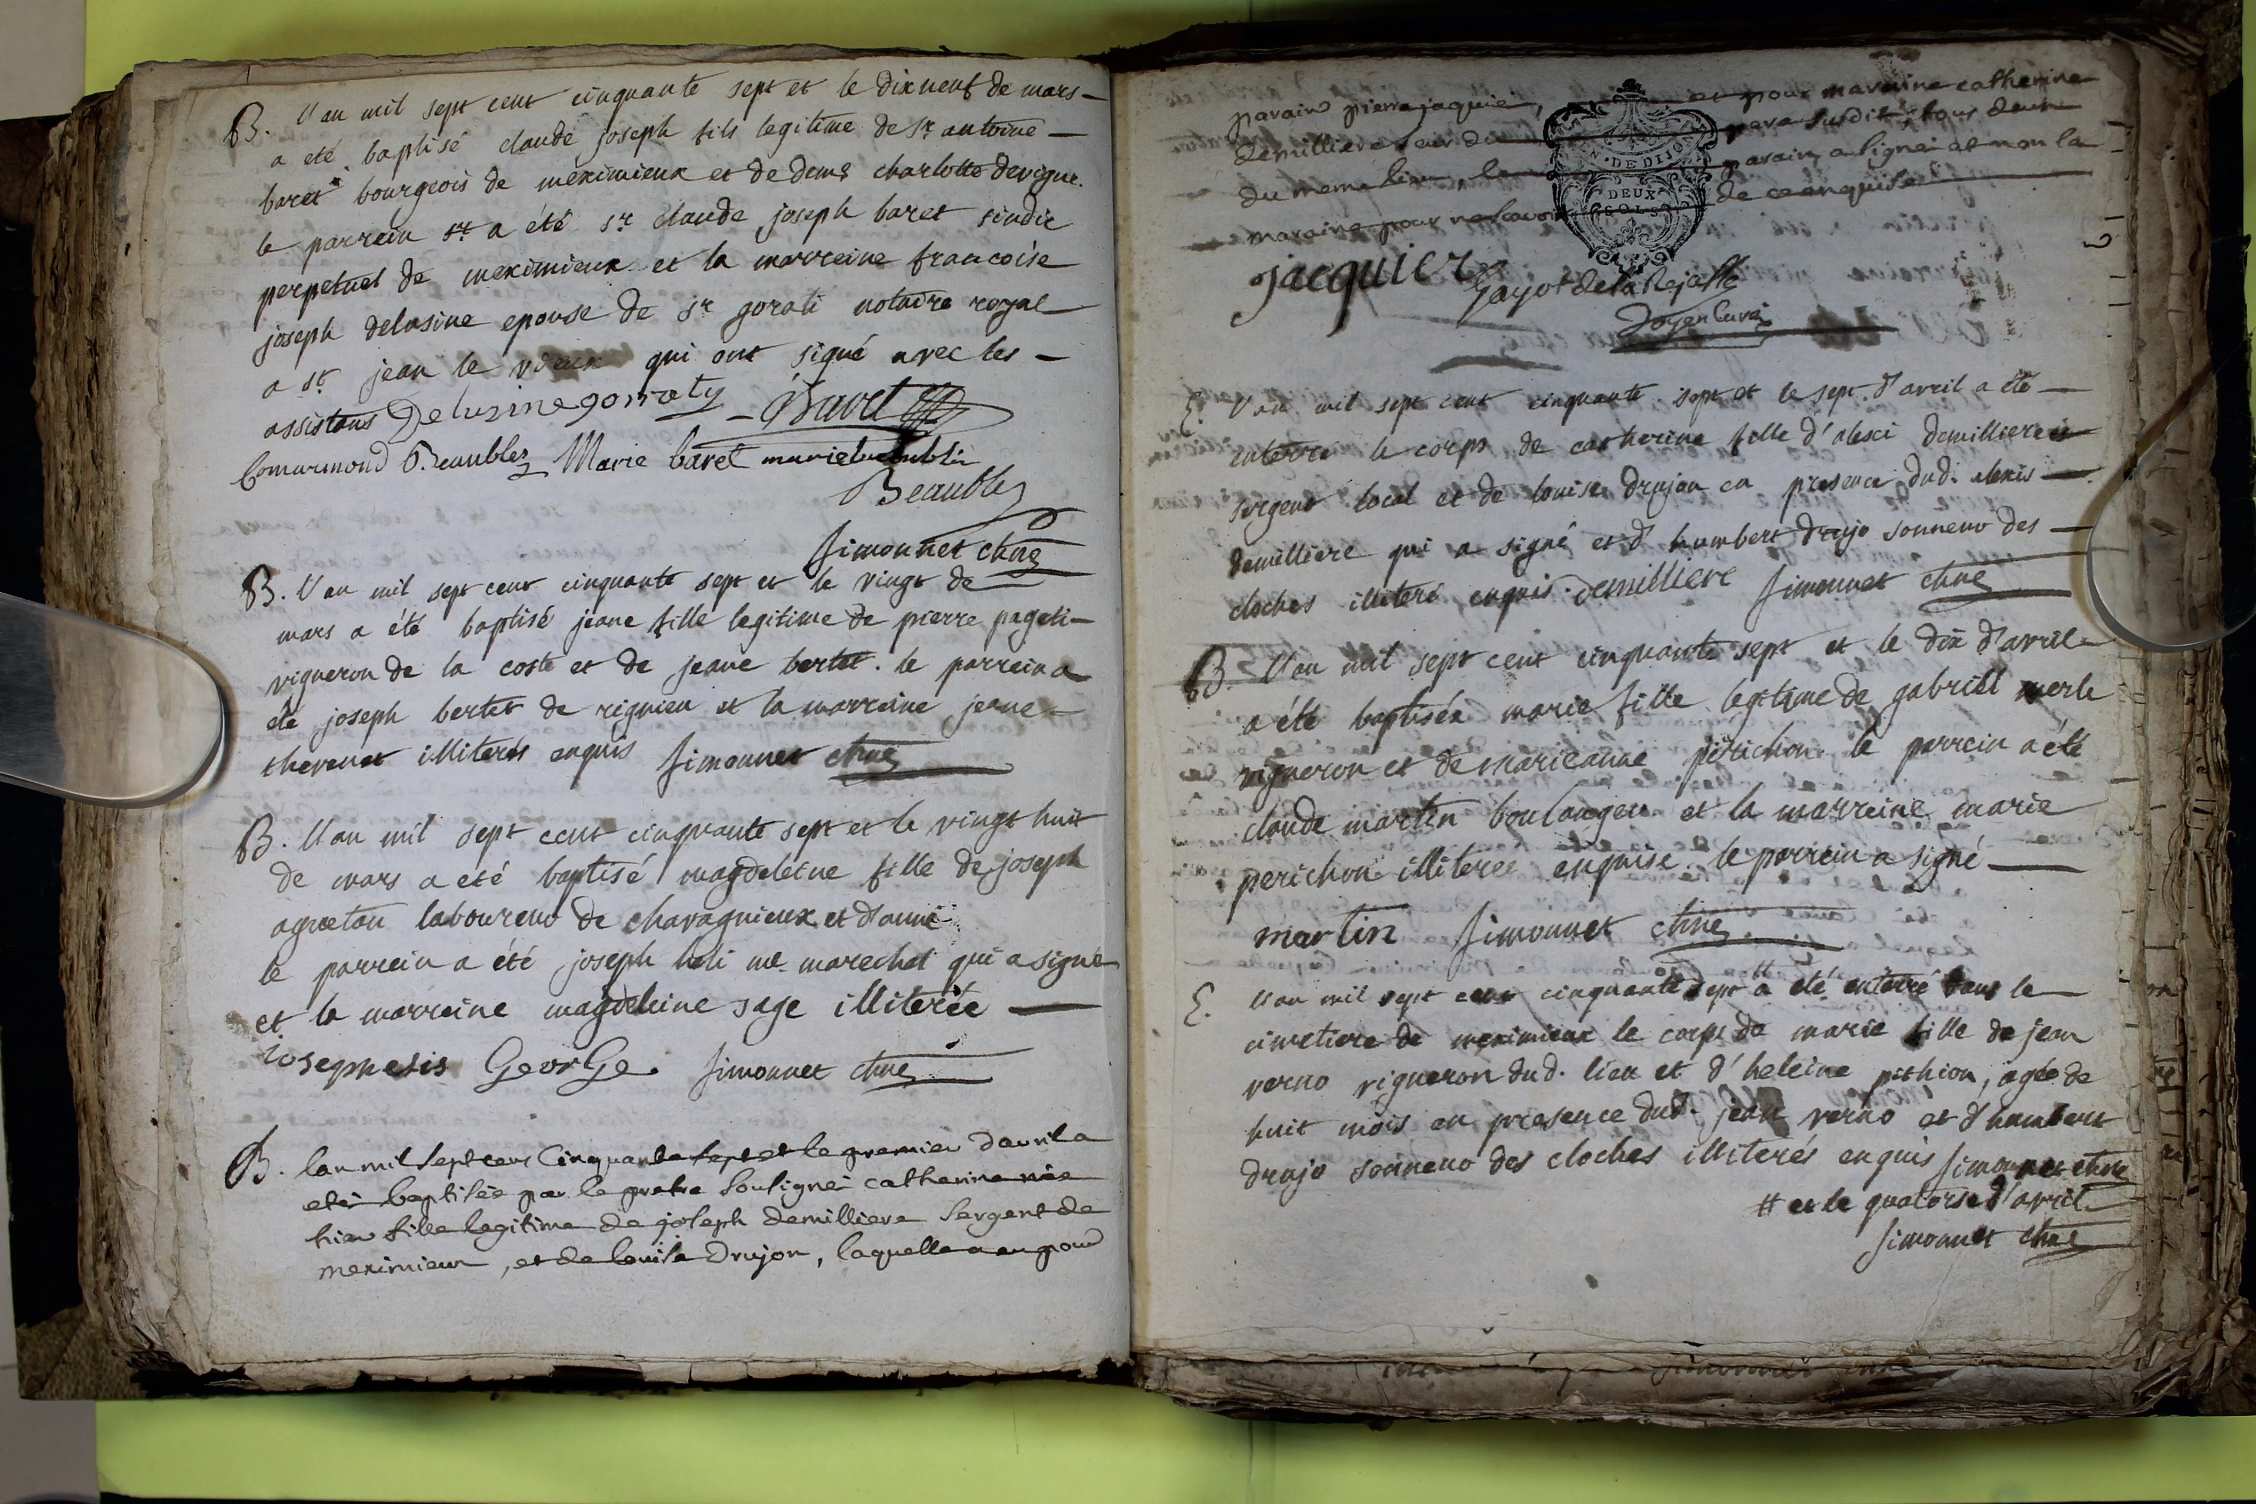 B. l'an mil sept cent cinquante sept et le dixneuf de mars
a eté baptisé claude joseph fils legitime de sr antoine
baret bourgeois de meximieux et de dem? charlotte devigne.
le parrein a été sr claude joseph baret sindic
perpetuel de meximieux et la marreine francoise
joseph delusine epouse de sr gorati notaire royal
a st jean le vieux qui ont signé avec les
assistans Delusinegorraty Baret
Comarmond Beaublez Marie baret
Beaublez
Simonnet chne
B. l'an mil sept cent cinquante sept et le vingt de
mars a été baptisé jeane fille legitime de pierre pageti
vigneron de la coste et de jeane bertet. le parrein a
été joseph bertet de rignieu et la marreine jeane
thevenet illiterés enquis Simonnet chne
B. l'an mil sept cent cinquante sept et le vingt huit
de mars a eté baptisé magdeleine fille de joseph
laboureur de chavagnieux et d'anne
le parrein a été joseph me. marechal qui a signé
et la marreine magdeleine sage illiterée
George Simonnet chne
B. lan mil Sept cens Cinquante sept et le premier davril a
eté baptisée par le pretre Soussigné catherine née
hier fille legitime de joseph demilliere Sergent de
meximieux, et de louise Drujon, laquelle a eu pour
parain pierre jaquier, et pour maraine catherine
demilliere Seur du pere Susdit, tous deux
du meme lieu, le parain a Signé et non la
maraine pour ne scavoir de ce enquise
N DE DIJON
DEUX
SOLS
jacquier Gayot de la Rejasse
Doyen Curé
E. l'an mil sept cent cinquante sept et le sept d'avril a été
enterré le corps de catherine fille d'alexi demilliere
sergent local et de louise drujon en presence dud. alexis
demilliere qui a signé et d'humbert drujo sonneur des
cloches illiteré enquis. demilliere Simonnet chne
B. l'an mil sept cent cinquante sept et le dix d'avril
a été baptisée marie fille legitime de gabriel merle
vigneron et de marieanne perichon le parrein a été
claude martin boulanger et la marreine marie
perichon illiteree enquise. le parrein a signé
martin Simonnet chne
E. l'an mil sept cent cinquante sept # a été enterré dans le
cimetiere de meximieux le corps de marie fille de jean
verno vigneron dud. lieu et d'heleine pithion, agée de
huit mois en presence dud. jean verno et d'humbert
drujo sonneur des cloches illiterés enquis Simonnet chne
# et le quatorse d'avril
Simonnet chne